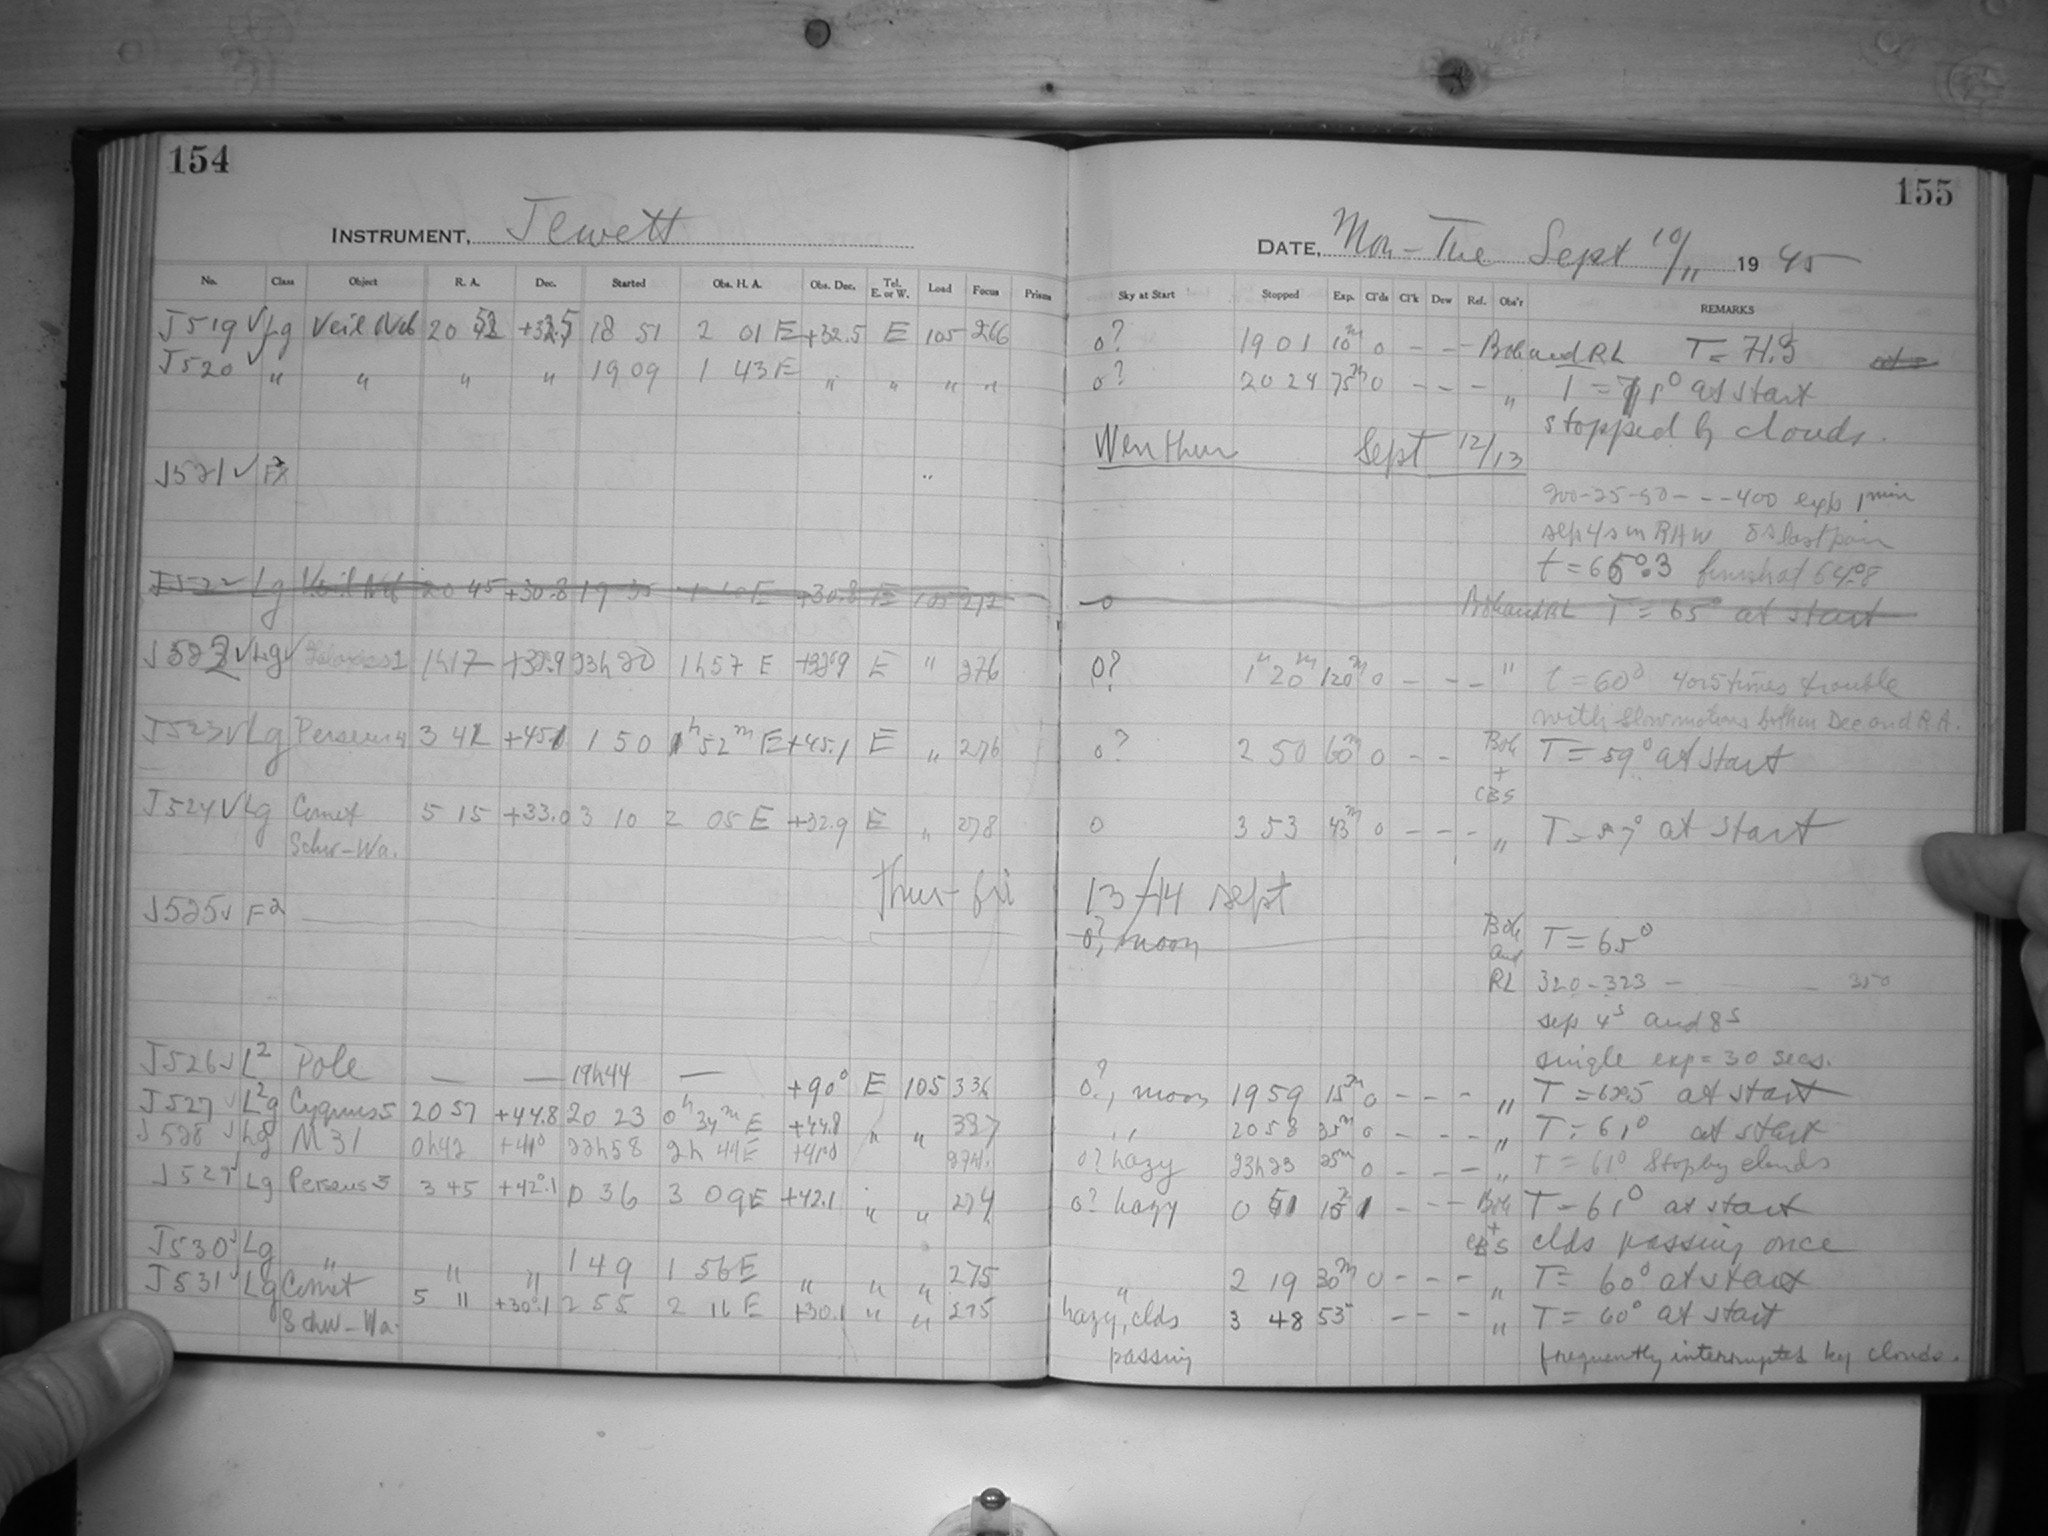 154
155
INSTRUMENT, Jewett
DATE, Mon-Tue Sept 10/11 1945
No. Class Object R. A. Dec. Started Obs. H. A. Obs. Dec. Tel. E. or W. Load Focus Prism Sky at Start Stopped Exp. Cl'ds Cl'k Dew Ref. Obs'r REMARKS
J519 √ Lg Veil Neb 20 52 +32.5 18 51 2 01 E +32.5 E 105 266 0? 1901 10m 0 - - Bok and RL T = 71.5
J520 √ " " " " 1909 1 43 E " " " " 0? 2024 75m 0 - - - " T = 71.5° at start
stopped by clouds.
Wen Thur Sept 12/13
J521 √ F2 "
200-25-50- - -400 exp 1 min
sep 4s in RA W 8s last pair
t = 65°.3 finish at 64°.8
J522 Lg Veil Neb 20 45 +30.8 19 35 E +30.8 E 105 272 0 Bok and RL T = 65° at start
J522 √ Lg √ 1h17 +32.9 23h20 1h57 E +32.9 E " 276 0? 1h20m 120m 0 - - - " t = 60° 4 or 5 times trouble
with slow motions both in Dec and R.A.
J523 √ Lg Perseus 4 3 42 +45.1 1 50 1h52m E +45.1 E " 276 0? 2 50 60m 0 - - Bok + CBS T = 59° at start
J524 √ Lg Comet Schw-Wa. 5 15 +33.0 3 10 2 05 E +32.9 E " 278 0 3 53 43m 0 - - - " T = 57° at start
Thur-fri 13/14 sept
J525 √ F2 0?, moon Bok and RL T = 65°
320-323 - - 350
sep 4s and 8s
single exp = 30 secs.
J526 √ L2 Pole — — 19h44 — +90° E 105 336 0?, moon 1959 15m 0 - - - " T = 62.5 at start
J527 √ L2g Cygnus 5 20 57 +44.8 20 23 0h34m E +44.8 " " 337 " 2058 35m 0 - - - " T = 61° at start
J528 √ Lg M31 0h42 +41° 22h58 2h 44E +41° 274 0? hazy 23h23 25m 0 - - - " T = 61° Stop by clouds
J529 √ Lg Perseus 3 3 45 +42°.1 0 36 3 09E +42.1 " " 274 0? hazy 0 51 15 1 - - - Bok + CBS T = 61° at start
clds passing once
J530 √ Lg " " " 1 49 1 56E " " " 275 " 2 19 30m 0 - - - " T = 60° at start
J531 √ Lg Comet Schw-Wa. 5 11 +30°.1 2 55 2 16 E +30.1 " " 275 hazy, clds passing 3 48 53 - - - " T = 60° at start
frequently interrupted by clouds.